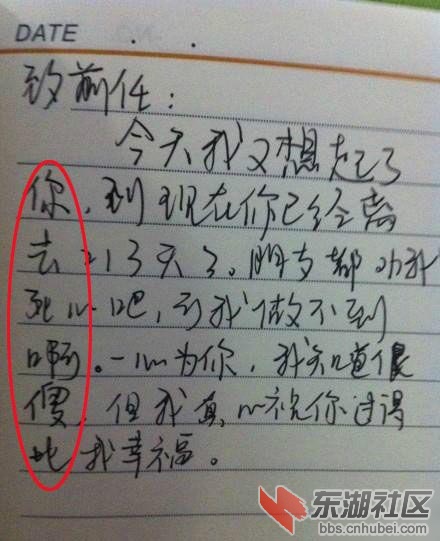 DATE . .
致前任：
今天我又想起了
你，到现在你已经离
去213天了。朋友都劝我
死心吧，可我做不到
啊。一心为你，我知道很
傻，但我真心祝你过得
比我幸福。
东湖社区
bbs.cnhubei.com